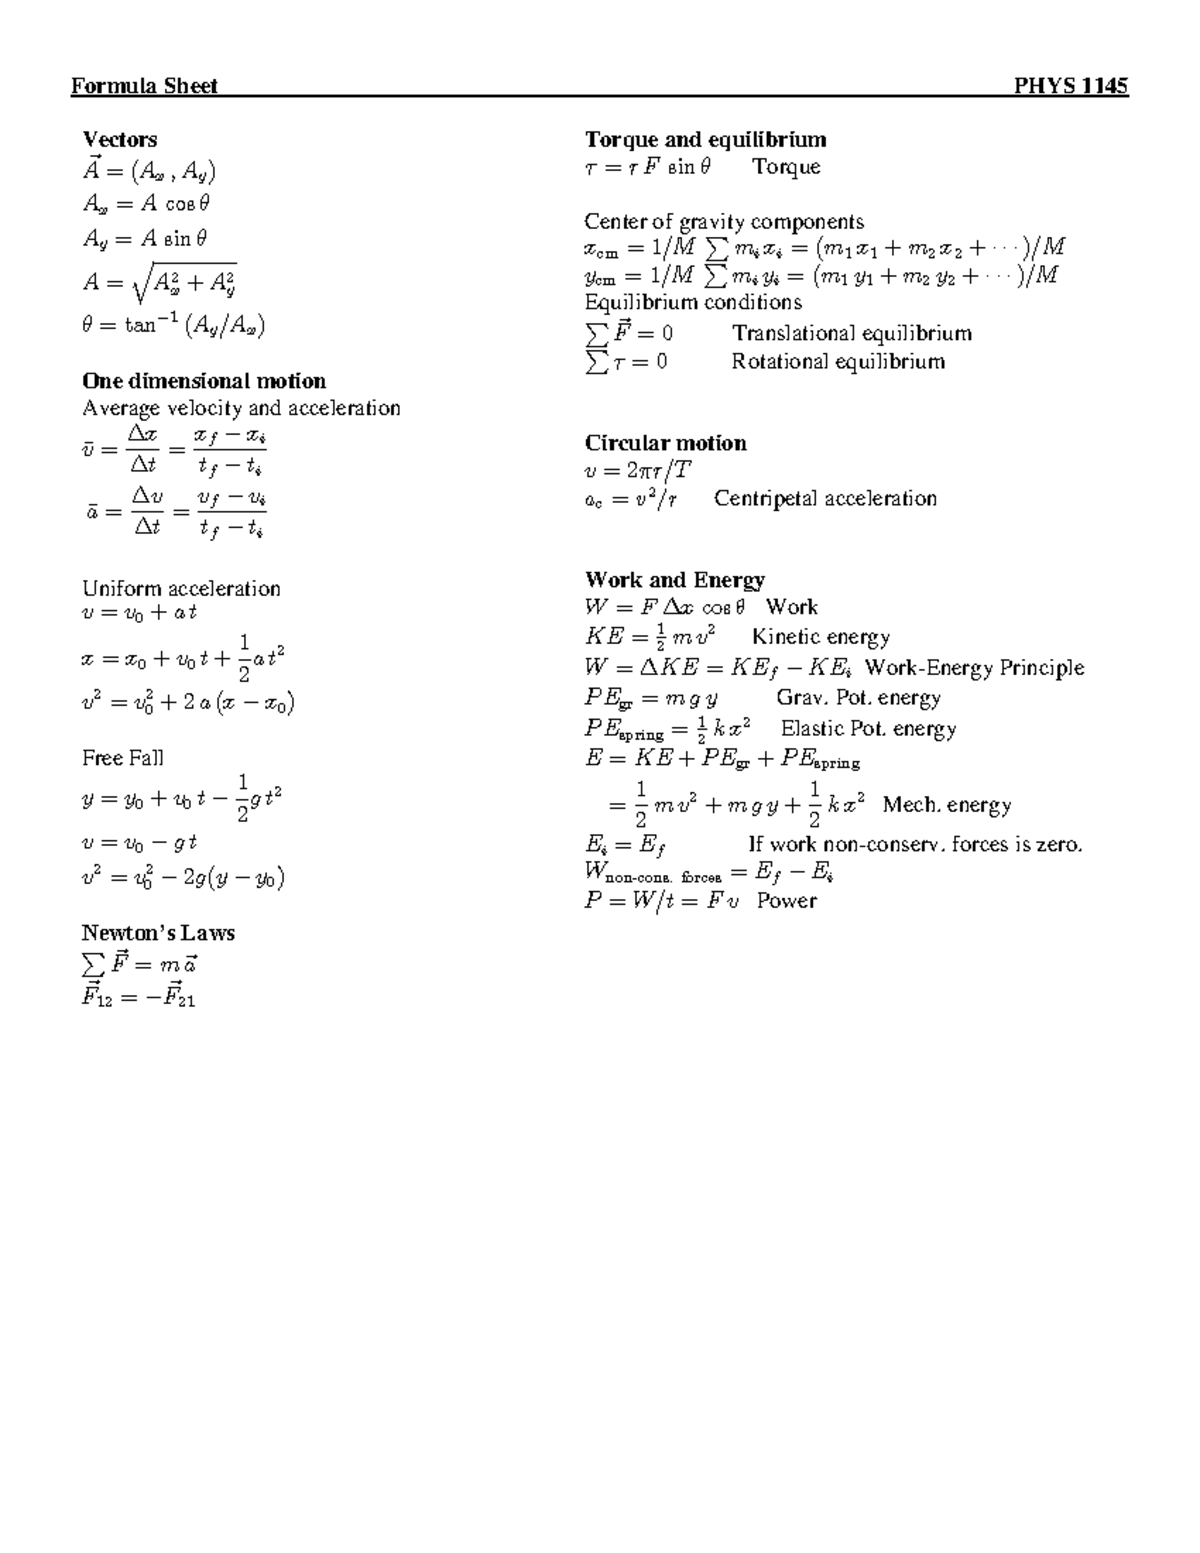 Formula Sheet PHYS 1145
Vectors
A⃗ = (Aₓ , A_y)
Aₓ = A cos θ
A_y = A sin θ
A = √(Aₓ² + A_y²)
θ = tan⁻¹ (A_y/Aₓ)
One dimensional motion
Average velocity and acceleration
v̄ = Δx/Δt = (x_f − x_i)/(t_f − t_i)
ā = Δv/Δt = (v_f − v_i)/(t_f − t_i)
Uniform acceleration
v = v₀ + a t
x = x₀ + v₀ t + 1/2 a t²
v² = v₀² + 2 a (x − x₀)
Free Fall
y = y₀ + v₀ t − 1/2 g t²
v = v₀ − g t
v² = v₀² − 2g(y − y₀)
Newton's Laws
∑ F⃗ = m a⃗
F⃗₁₂ = −F⃗₂₁
Torque and equilibrium
τ = r F sin θ Torque
Center of gravity components
x_cm = 1/M ∑ m_i x_i = (m₁ x₁ + m₂ x₂ + ···)/M
y_cm = 1/M ∑ m_i y_i = (m₁ y₁ + m₂ y₂ + ···)/M
Equilibrium conditions
∑ F⃗ = 0 Translational equilibrium
∑ τ = 0 Rotational equilibrium
Circular motion
v = 2πr/T
a_c = v²/r Centripetal acceleration
Work and Energy
W = F Δx cos θ Work
KE = 1/2 m v² Kinetic energy
W = ΔKE = KE_f − KE_i Work-Energy Principle
PE_gr = m g y Grav. Pot. energy
PE_spring = 1/2 k x² Elastic Pot. energy
E = KE + PE_gr + PE_spring
= 1/2 m v² + m g y + 1/2 k x² Mech. energy
E_i = E_f If work non-conserv. forces is zero.
W_non-cons. forces = E_f − E_i
P = W/t = F v Power